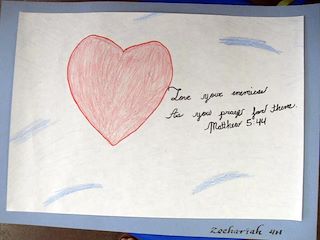 Love your enemies
As you pray for them.
Matthew 5:44
Zechariah 4H